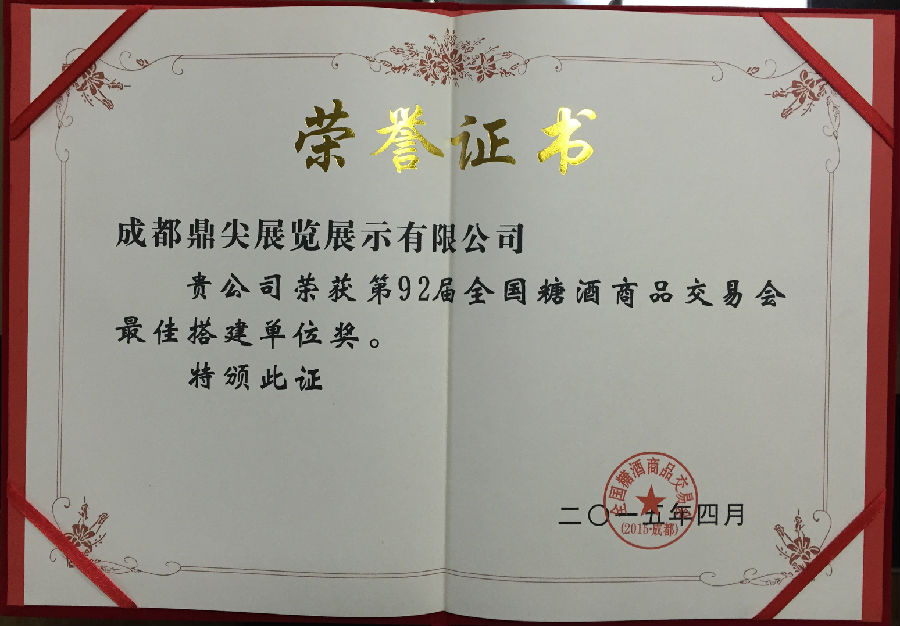 荣誉证书
成都鼎尖展览展示有限公司
贵公司荣获第92届全国糖酒商品交易会
最佳搭建单位奖。
特颁此证
全国糖酒商品交易会
(2015·成都)
二〇一五年四月